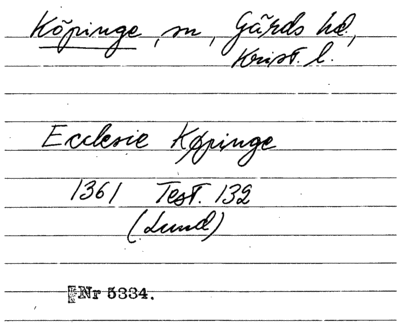 Köpinge, sn, Gärds hd,
Krist. l.
Ecclesie Køpinge
1361 Test. 132
(Lund)
Nr 5334.